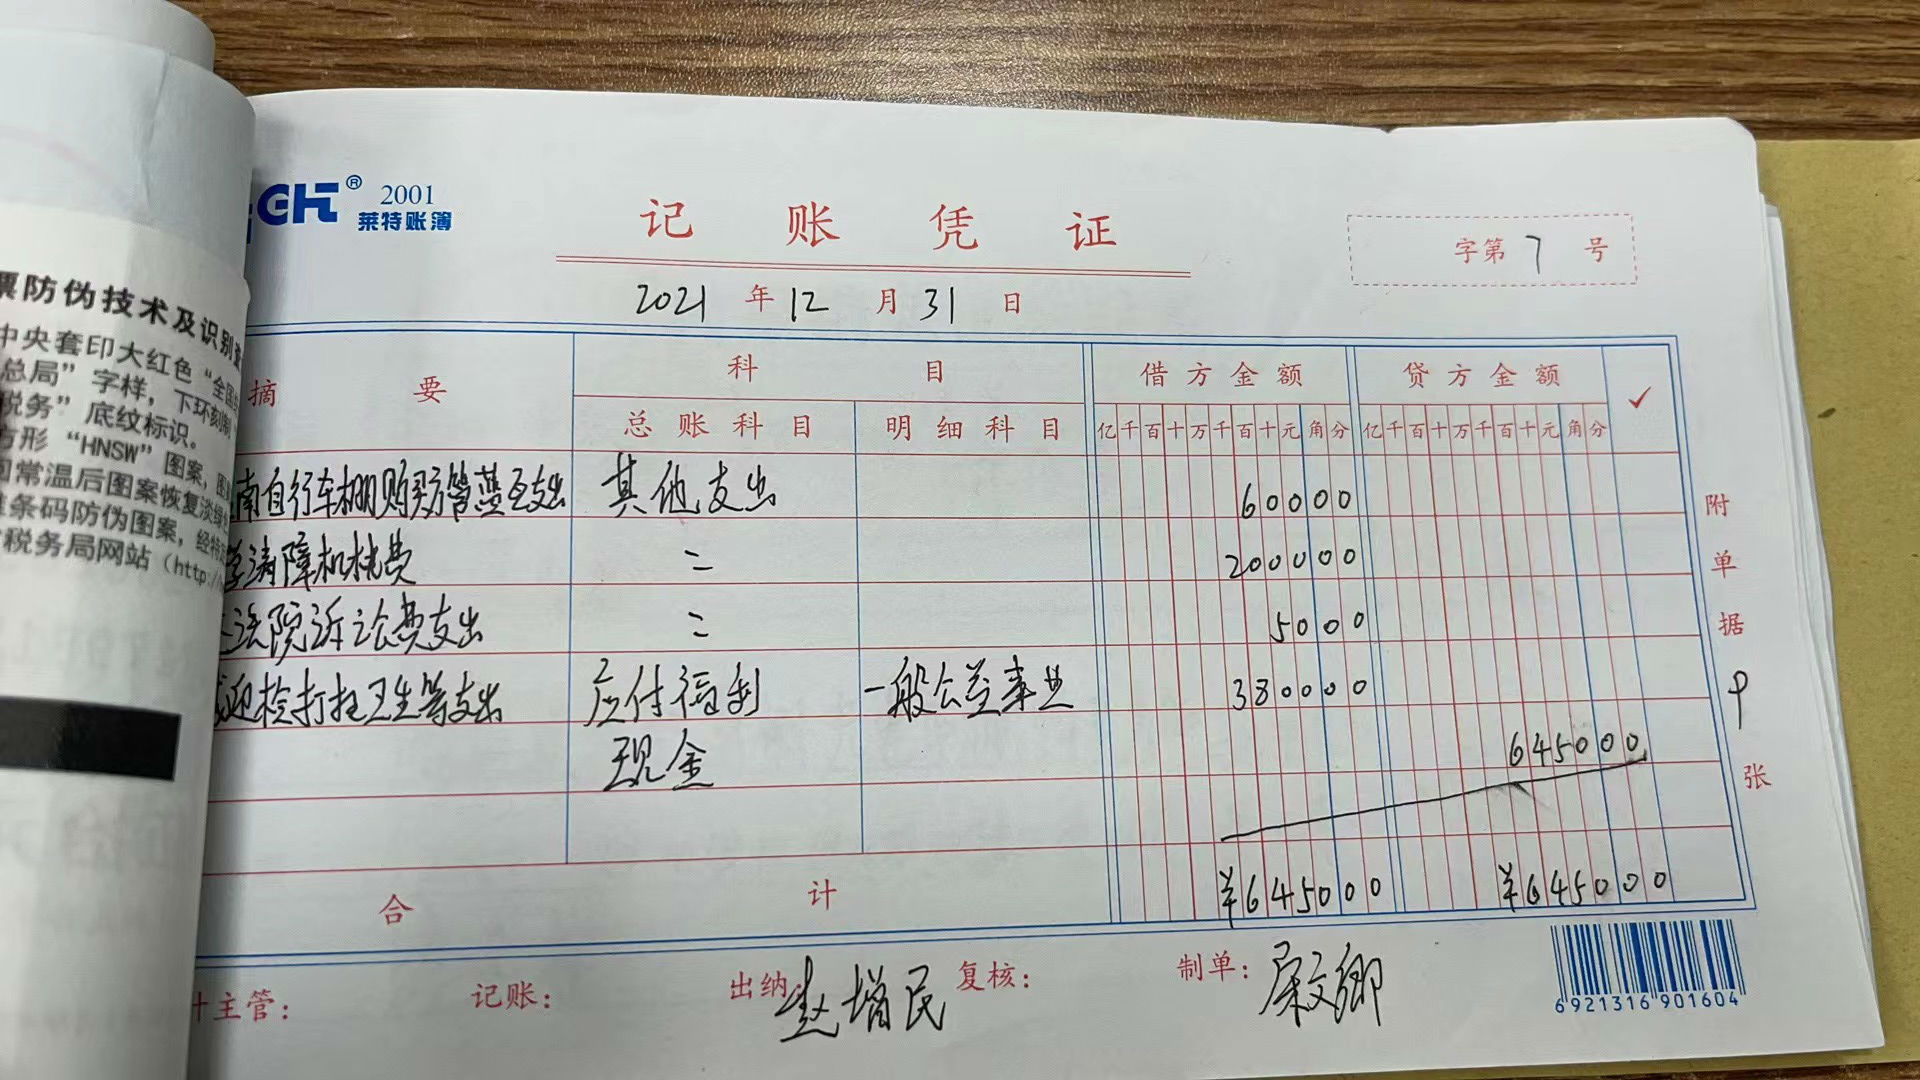 2001
莱特账簿
记 账 凭 证
字第 7 号
2021 年 12 月 31 日
票防伪技术及识别
中央套印大红色“全国
总局”字样，下环刻制
税务”底纹标识。
方形“HNSW”图案，
常温后图案恢复淡绿
条码防伪图案，经特
税务局网站（http:/
摘 要
科 目
借方金额
贷方金额
✓
总账科目
明细科目
亿千百十万千百十元角分
亿千百十万千百十元角分
南自行车棚购买 支出 其他支出 60000
清障机械费 〃 200000
法院诉讼费支出 〃 5000
迎检打扫卫生等支出 应付福利 一般公益事业 380000
现金 645000
合 计 ¥645000 ¥645000
附单据 张
主管：
记账：
出纳：赵增民
复核：
制单：
6921316901604